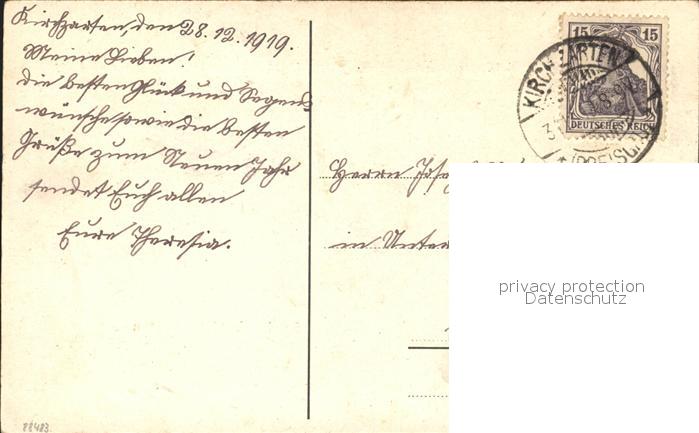 Kirchzarten, den 28.12.1919.
Meine Lieben!
die besten Glück und Segens-
wünsche sowie die besten
Grüße zum Neuen Jahr
sendet Euch allen
Eure Theresia.
15 15
DEUTSCHES REICH
KIRCHZARTEN
Herrn Josef
in Unter
privacy protection
Datenschutz
88483